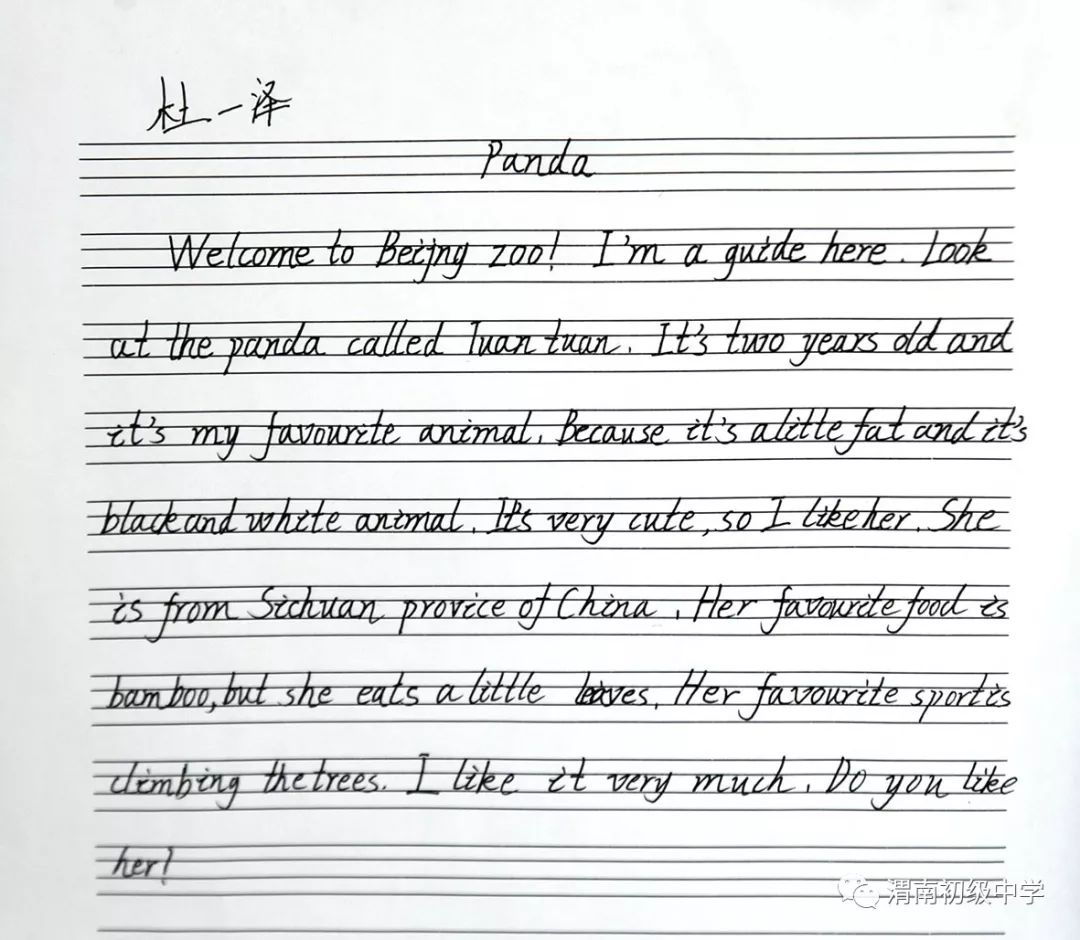 杜一泽
Panda
Welcome to Beijng zoo! I'm a guide here. Look
at the panda called Tuan tuan. It's two years old and
it's my favourite animal. Because it's a little fat and it's
black and white animal. It's very cute, so I like her. She
is from Sichuan provice of China. Her favourite food is
bamboo, but she eats a little leaves. Her favourite sport is
climbing the trees. I like it very much. Do you like
her?
渭南初级中学